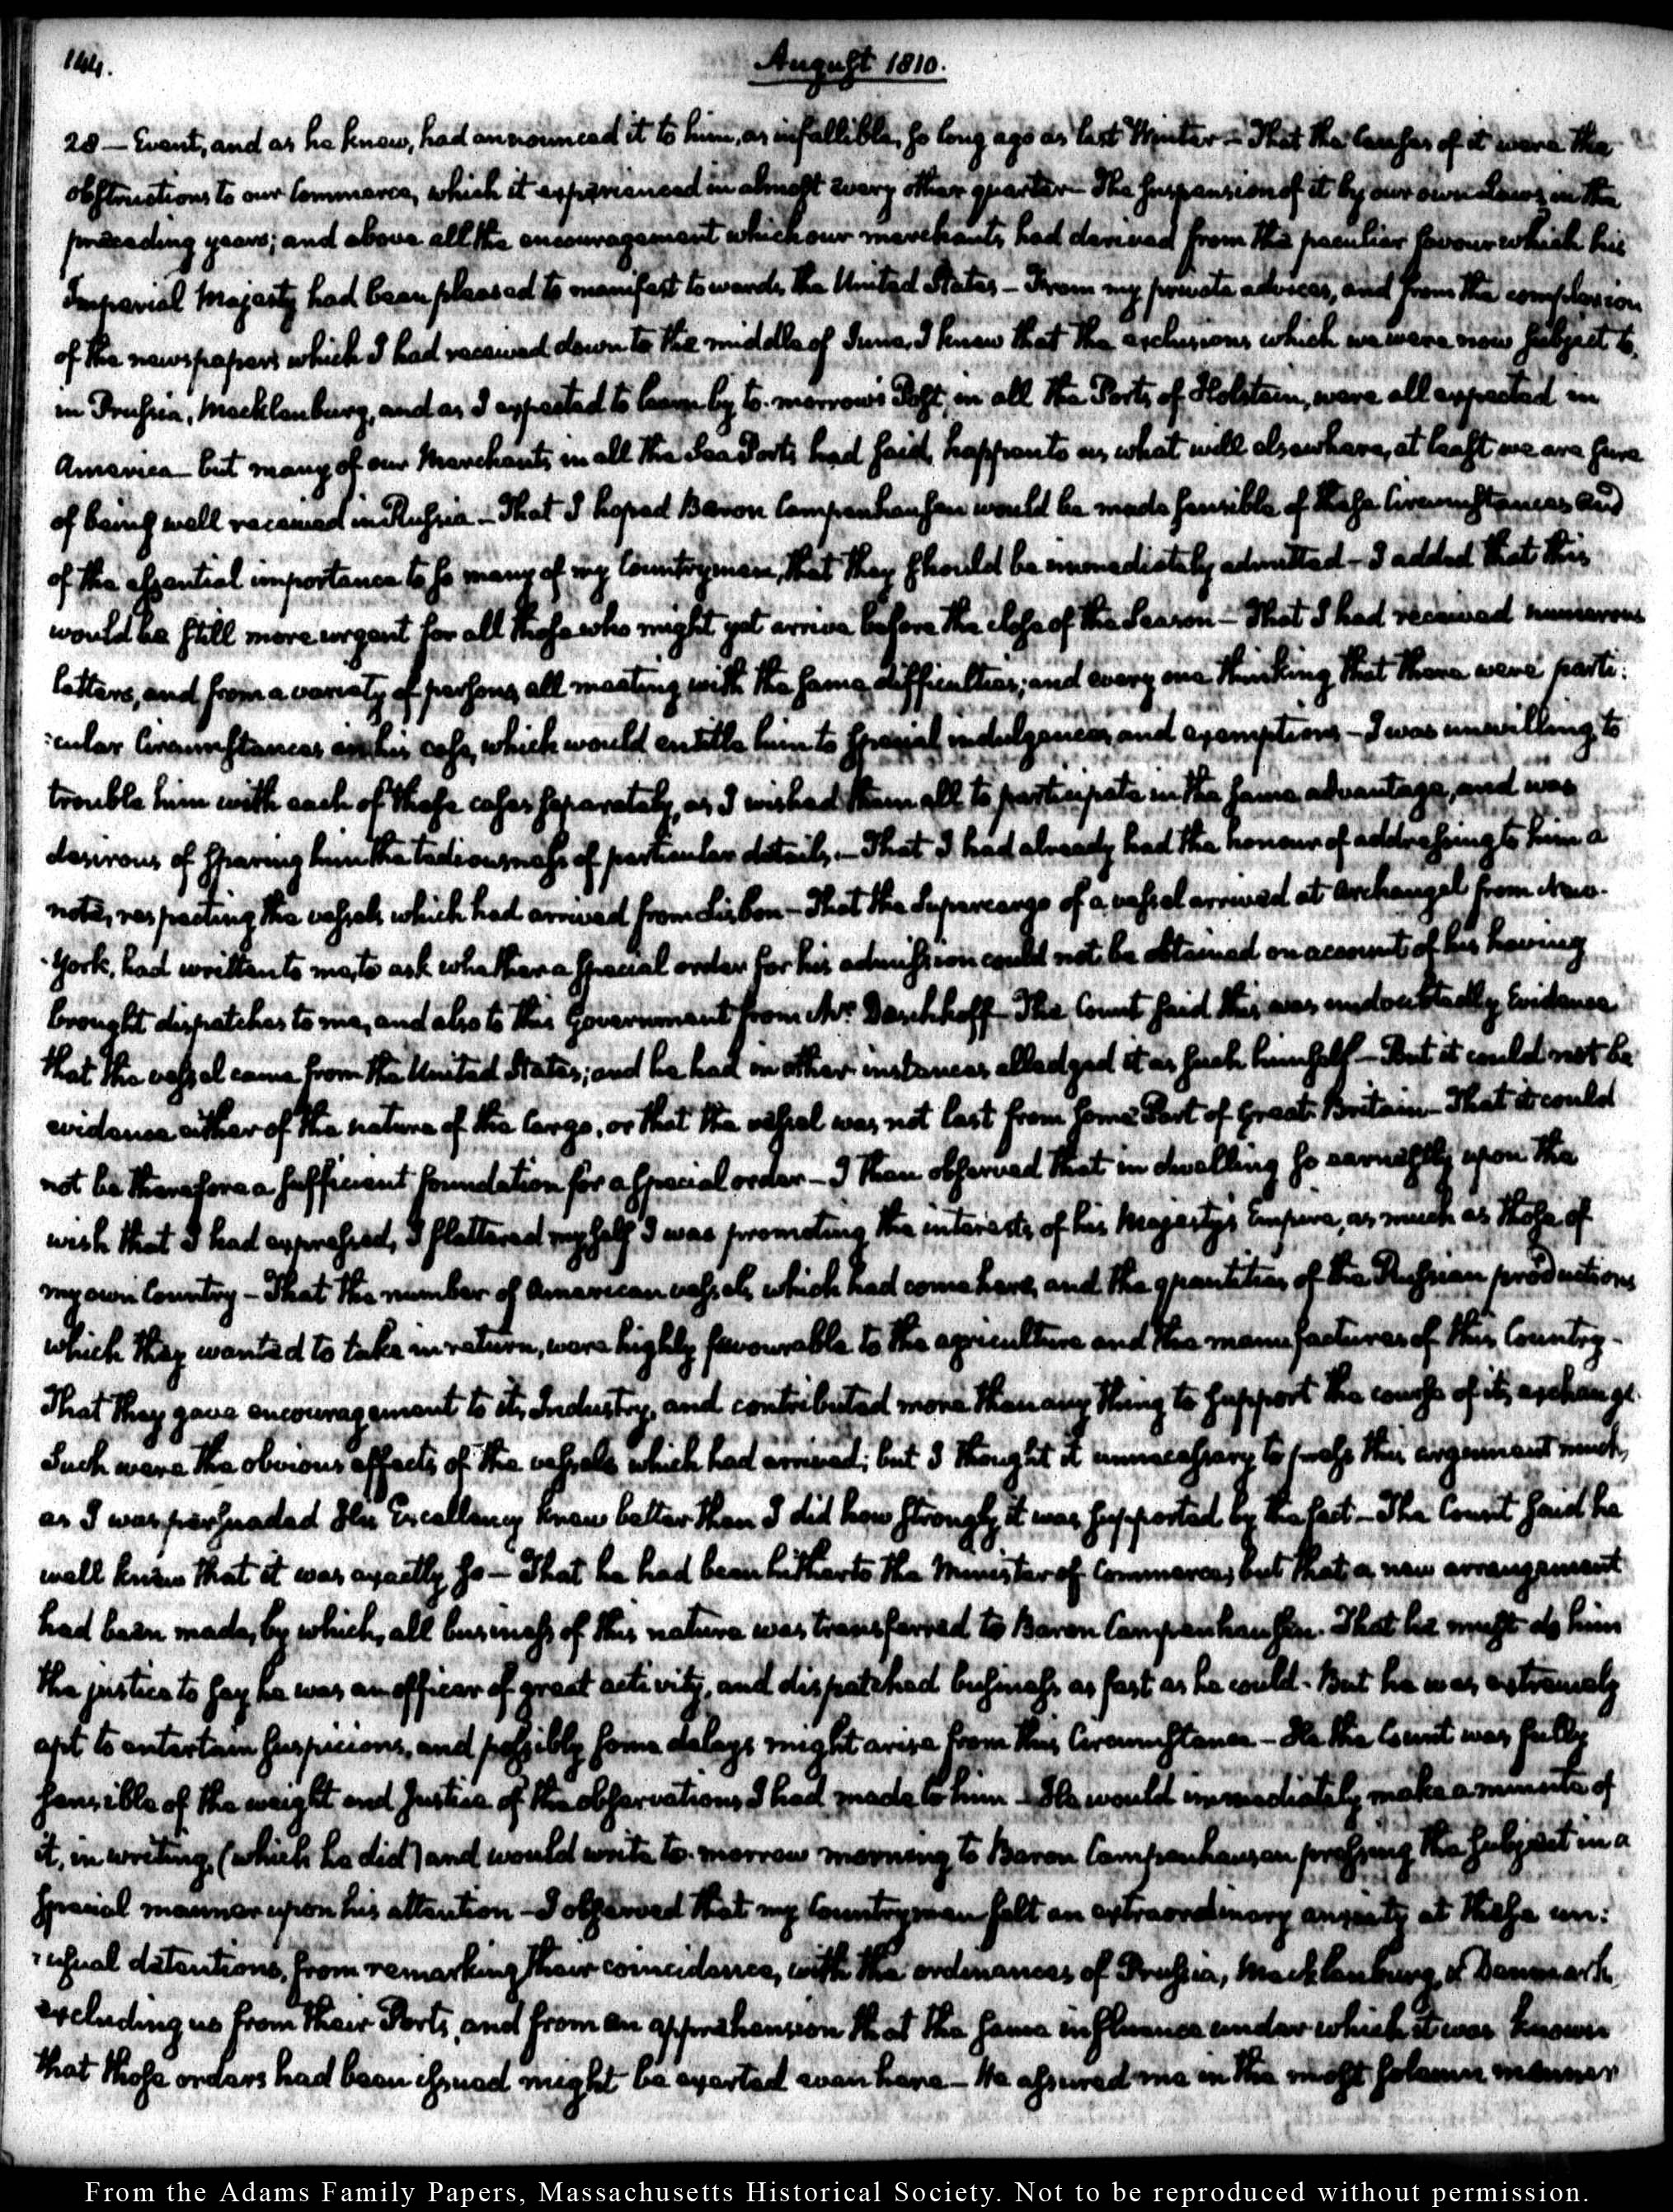 144.
August 1810.
28 — Event, and as he knew, had announced it to him, as infallible, so long ago as last Winter — That the Causes of it were the
obstructions to our Commerce, which it experienced in almost every other quarter — The suspension of it by our own Laws, in the
preceding years; and above all the encouragement which our merchants had derived from the peculiar favour which his
Imperial Majesty had been pleased to manifest towards the United States — From my private advices, and from the complexion
of the newspapers which I had received down to the middle of June, I knew that the exclusions which we were now subject to,
in Prussia, Mecklenburg, and as I expected to learn by to-morrow's Post, in all the Ports of Holstein, were all expected in
America — but many of our Merchants in all the Sea Ports had said, happen to us what will elsewhere, at least we are sure
of being well received in Russia — That I hoped Baron Campenhausen would be made sensible of these Circumstances and
of the essential importance to so many of my Countrymen, that they should be immediately admitted — I added that this
would be still more urgent for all those who might yet arrive before the close of the Season — That I had received numerous
letters, and from a variety of persons, all meeting with the same difficulties; and every one thinking that there were parti:
:cular Circumstances in his case, which would entitle him to special indulgences and exemptions — I was unwilling to
trouble him with each of these cases separately, as I wished them all to participate in the same advantage, and was
desirous of sparing him the tediousness of particular details. — That I had already had the honour of addressing to him a
note, respecting the vessels which had arrived from Lisbon — That the Supercargo of a vessel arrived at Archangel from New-
-York, had written to me, to ask whether a special order for his admission could not be obtained on account of his having
brought dispatches to me, and also to this Government from Mr. Daschkoff — The Count said this was undoubtedly Evidence
that the vessel came from the United States; and he had in other instances alledged it as such himself — But it could not be
evidence either of the nature of the Cargo, or that the vessel was not last from some Port of Great-Britain — That it could
not be therefore a sufficient foundation for a special order — I then observed that in dwelling so earnestly upon the
wish that I had expressed, I flattered myself I was promoting the interests of his Majesty's Empire, as much as those of
my own Country — That the number of American vessels which had come here, and the quantities of the Russian productions
which they wanted to take in return, were highly favourable to the agriculture and the manufactures of this Country —
That they gave encouragement to its Industry, and contributed more than any thing to support the course of its exchange.
Such were the obvious effects of the vessels which had arrived; but I thought it unnecessary to press this argument much,
as I was persuaded His Excellency knew better than I did how strongly it was supported by the fact — The Count said he
well knew that it was exactly so — That he had been hitherto the Minister of Commerce; but that a new arrangement
had been made, by which, all business of this nature was transferred to Baron Campenhausen. That he must do him
the justice to say he was an officer of great activity, and dispatched business as fast as he could. But he was extremely
apt to entertain suspicions, and possibly some delays might arise from this Circumstance — He the Count was fully
sensible of the weight and Justice of the observations I had made to him — He would immediately make a minute of
it, in writing, (which he did) and would write to-morrow morning to Baron Campenhausen pressing the subject in a
special manner upon his attention — I observed that my Countrymen felt an extraordinary anxiety at these un:
:usual detentions, from remarking their coincidence, with the ordinances of Prussia, Mecklenburg, & Denmark,
excluding us from their Ports, and from an apprehension that the same influence under which it was known
that those orders had been issued might be exerted even here — He assured me in the most solemn manner
From the Adams Family Papers, Massachusetts Historical Society. Not to be reproduced without permission.